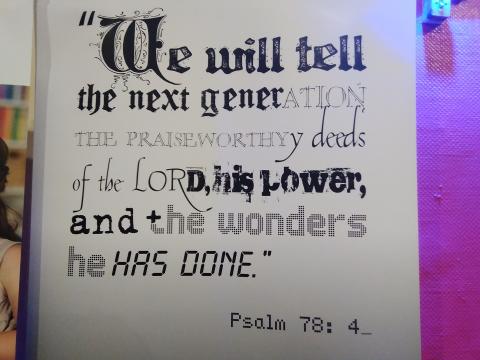 "We will tell
the next generATION
THE PRAISEWORTHYy deeds
of the LORD, his power,
and the wonders
he HAS DONE."
Psalm 78: 4_